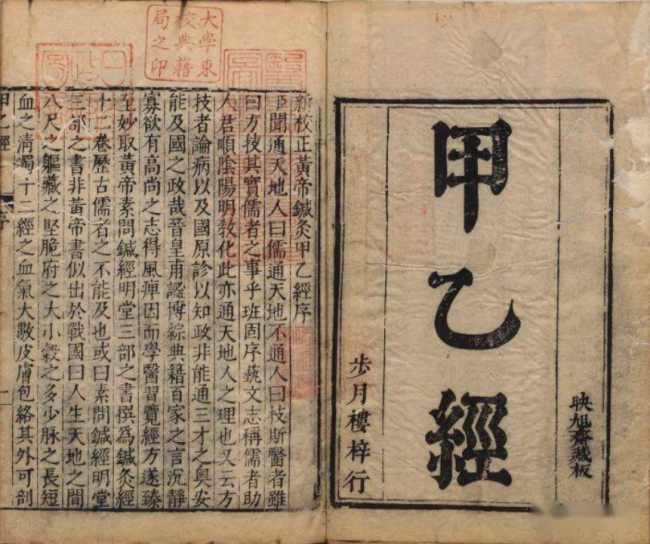 映旭齋藏板
甲乙經
歩月樓梓行
大學東
校典籍
局之印
新校正黃帝鍼灸甲乙經序
臣聞通天地人曰儒通天地不通人曰技斯醫者雖
曰方技其實儒者之事乎班固序蓺文志稱儒者助
人君順陰陽明教化此亦通天地人之理也又云方
技者論病以及國原診以知政非能通三才之奥安
能及國之政哉晉皇甫謐博綜典籍百家之言沉靜
寡欲有高尚之志得風痺因而學醫習覽經方遂臻
至妙取黃帝素問鍼經明堂三部之書撰爲鍼灸經
十二卷歷古儒者之不能及也或曰素問鍼經明堂
三部之書非黃帝書似出於戰國曰人生天地之間
八尺之軀藏之堅脆府之大小穀之多少脉之長短
血之清濁十二經之血氣大數皮膚包絡其外可剖
甲乙經 序 一